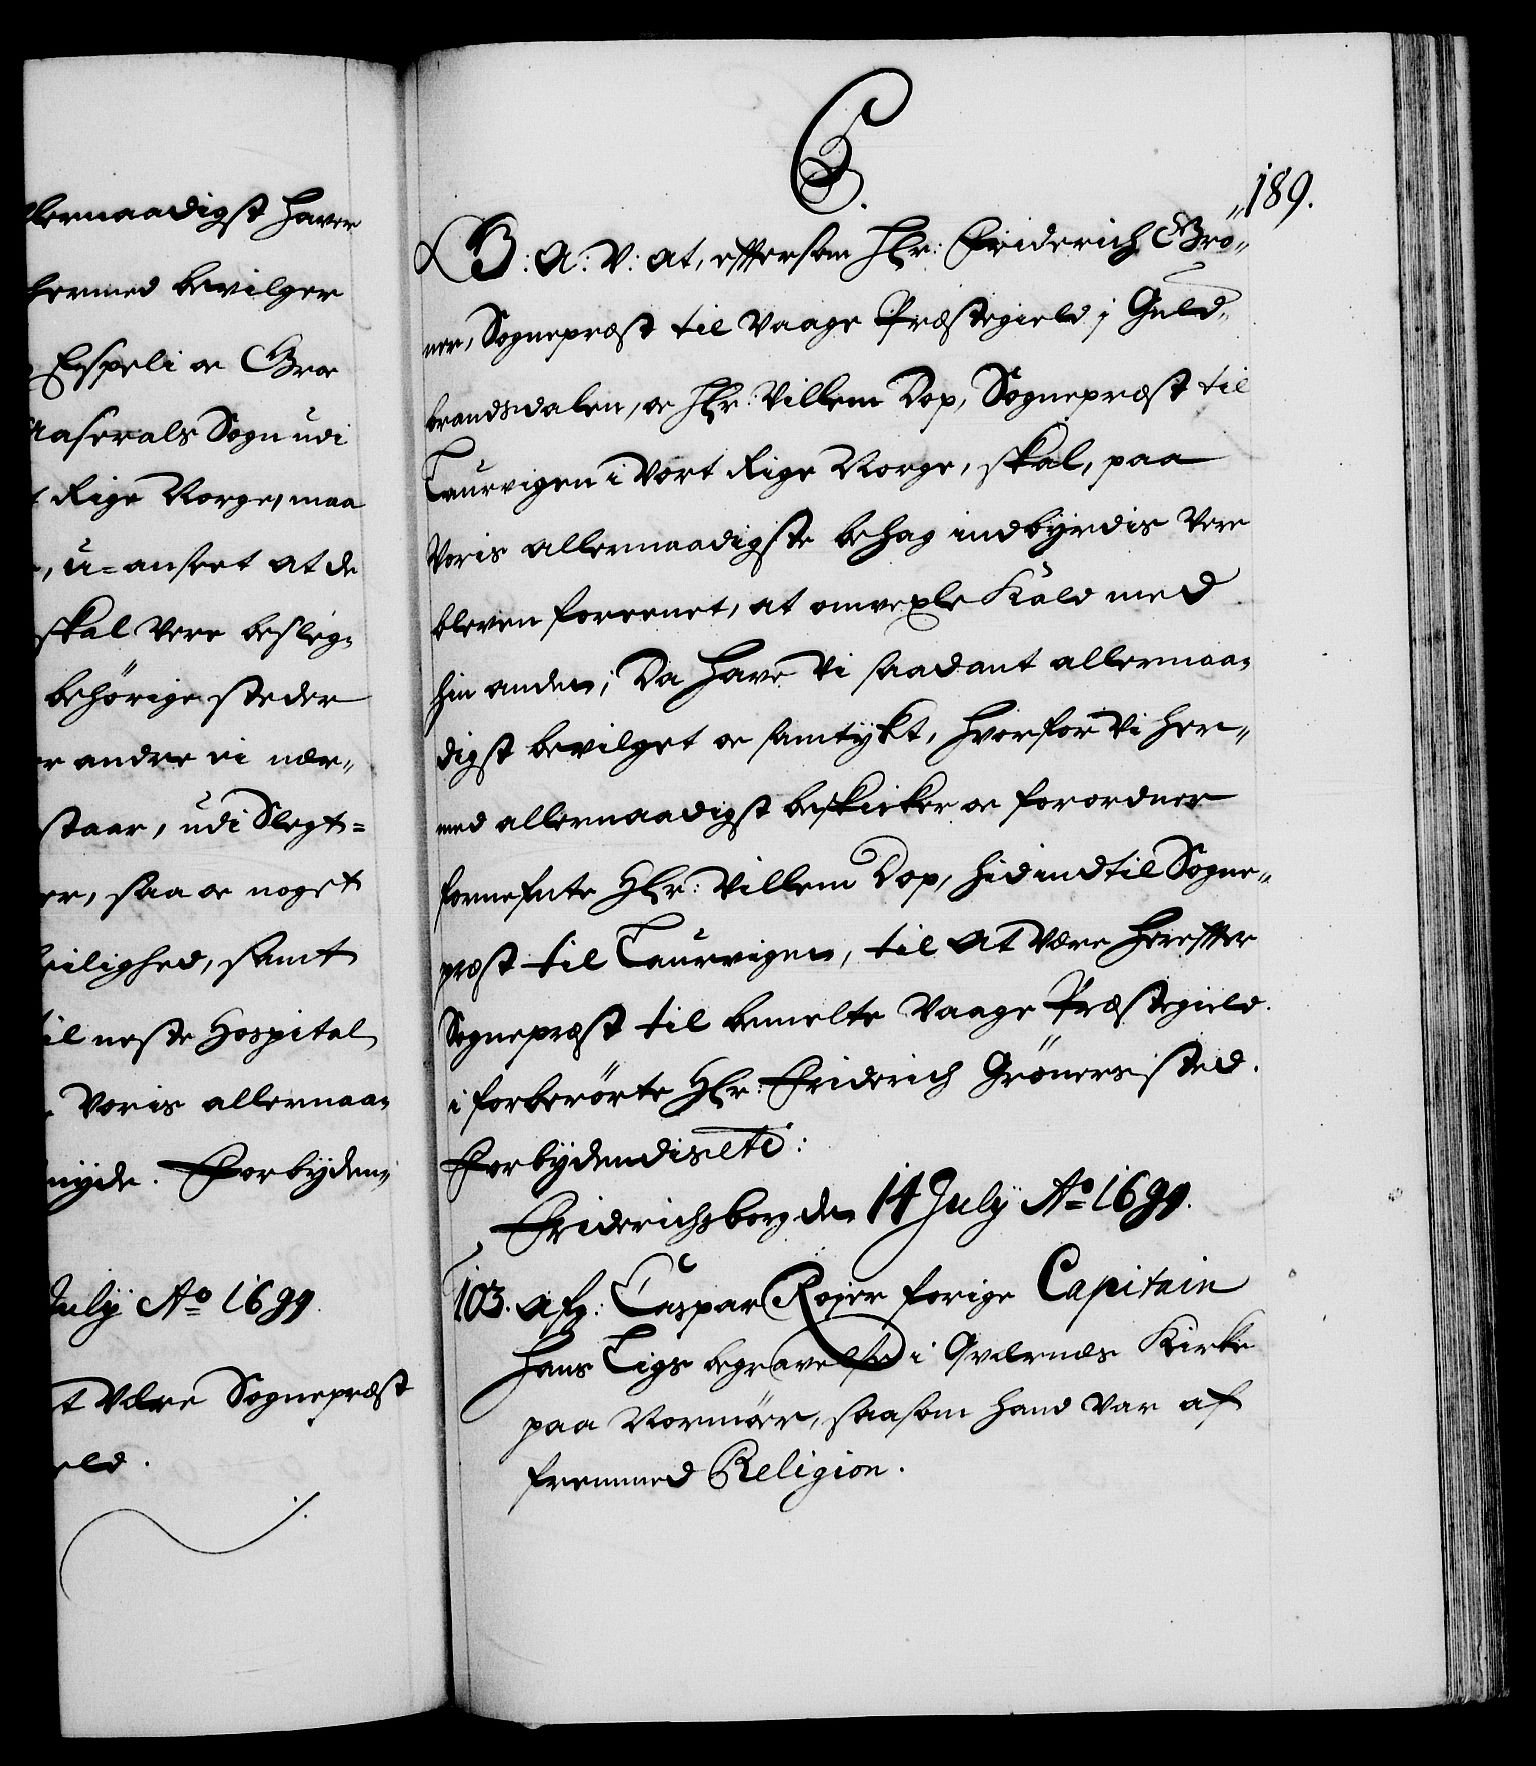 llernaadigst haver
hermed bevilger
Espeli oc Groe
Aaserals Sogn udi
t Rige Norge, maa
, u=anseet at de
skal være beslæg-
behörige steder
er andre ei nær-
staar, udi Slegt=
er, saa oc noget
leilighed, samt
til neste Hospital
Voris allernaa-
nyde. Forbyden-
July Aō 1699
t være Sognepræst
eld.
C5.
189.
G: A: V: at, effersom Hr: Friderich Grö-
ner, Sognepræst til Vaage Præstegield i Guld-
brandsdalen, oc Hr: Villem Dop, Sognepræst til
Laurvigen i Vort Rige Norge, skal, paa
Voris allernaadigste behag indbyrdis være
bleven foreenet, at omvexle Kald med
hin anden; Da have Vi saadant allernaa-
digst bevilget oc samtykt, hvorfor Vi her-
med allernaadigst beskicker oc forordner
fornefnte Hr: Villem Dop, hid indtil Sogne-
præst til Laurvigen, til at være herefter
Sognepræst til bemelte Vaage Præstegield.
i forberörte Hr: Friderich Gröners sted.
Forbydendis etc:
Friderichsborg den 14 July Aō 1699.
103. Afg: Caspar Rojer forige Capitain
Hans Ligs begravelse i Qværnæs Kirke
paa Normör, saasom hand var af
fremmed Religion.